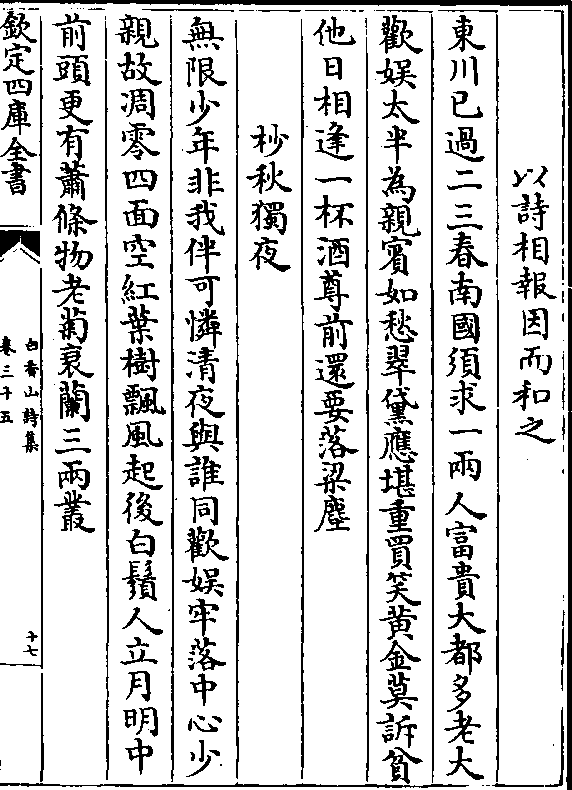 以詩相報因而和之
東川已過二三春南國須求一兩人富貴大都多老大
歡娱太半為親賓如愁翠黛應堪重買笑黄金莫訴貧
他日相逢一杯酒尊前還要落梁塵
杪秋獨夜
無限少年非我伴可憐清夜與誰同歡娱牢落中心少
親故凋零四面空紅葉樹飄風起後白鬚人立月明中
前頭更有蕭條物老菊衰蘭三兩叢
欽定四庫全書
白香山詩集
卷三十五
十七